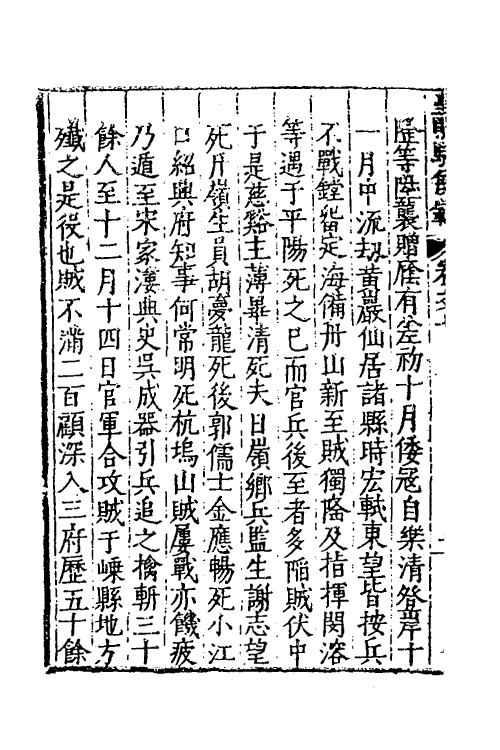 等陞襲贈廕有差初十月倭寇自樂清登岸十
一月中流刼黃巖仙居諸縣時宏軾東望皆按兵
不戰鏜留定海備舟山新至賊獨隆及指揮閔溶
等遇于平陽死之巳而官兵後至者多陷賊伏中
于是慈谿主薄畢清死夫日嶺鄉兵監生謝志望
死斤嶺生員胡夢龍死後郭儒士金應暢死小江
口紹興府知事何常明死杭塢山賊屢戰亦饑疲
乃遁至宋家漊典史吳成器引兵追之擒斬三十
餘人至十二月十四日官軍合攻賊于嵊縣地方
殲之是役也賊不滿二百顧深入三府歷五十餘